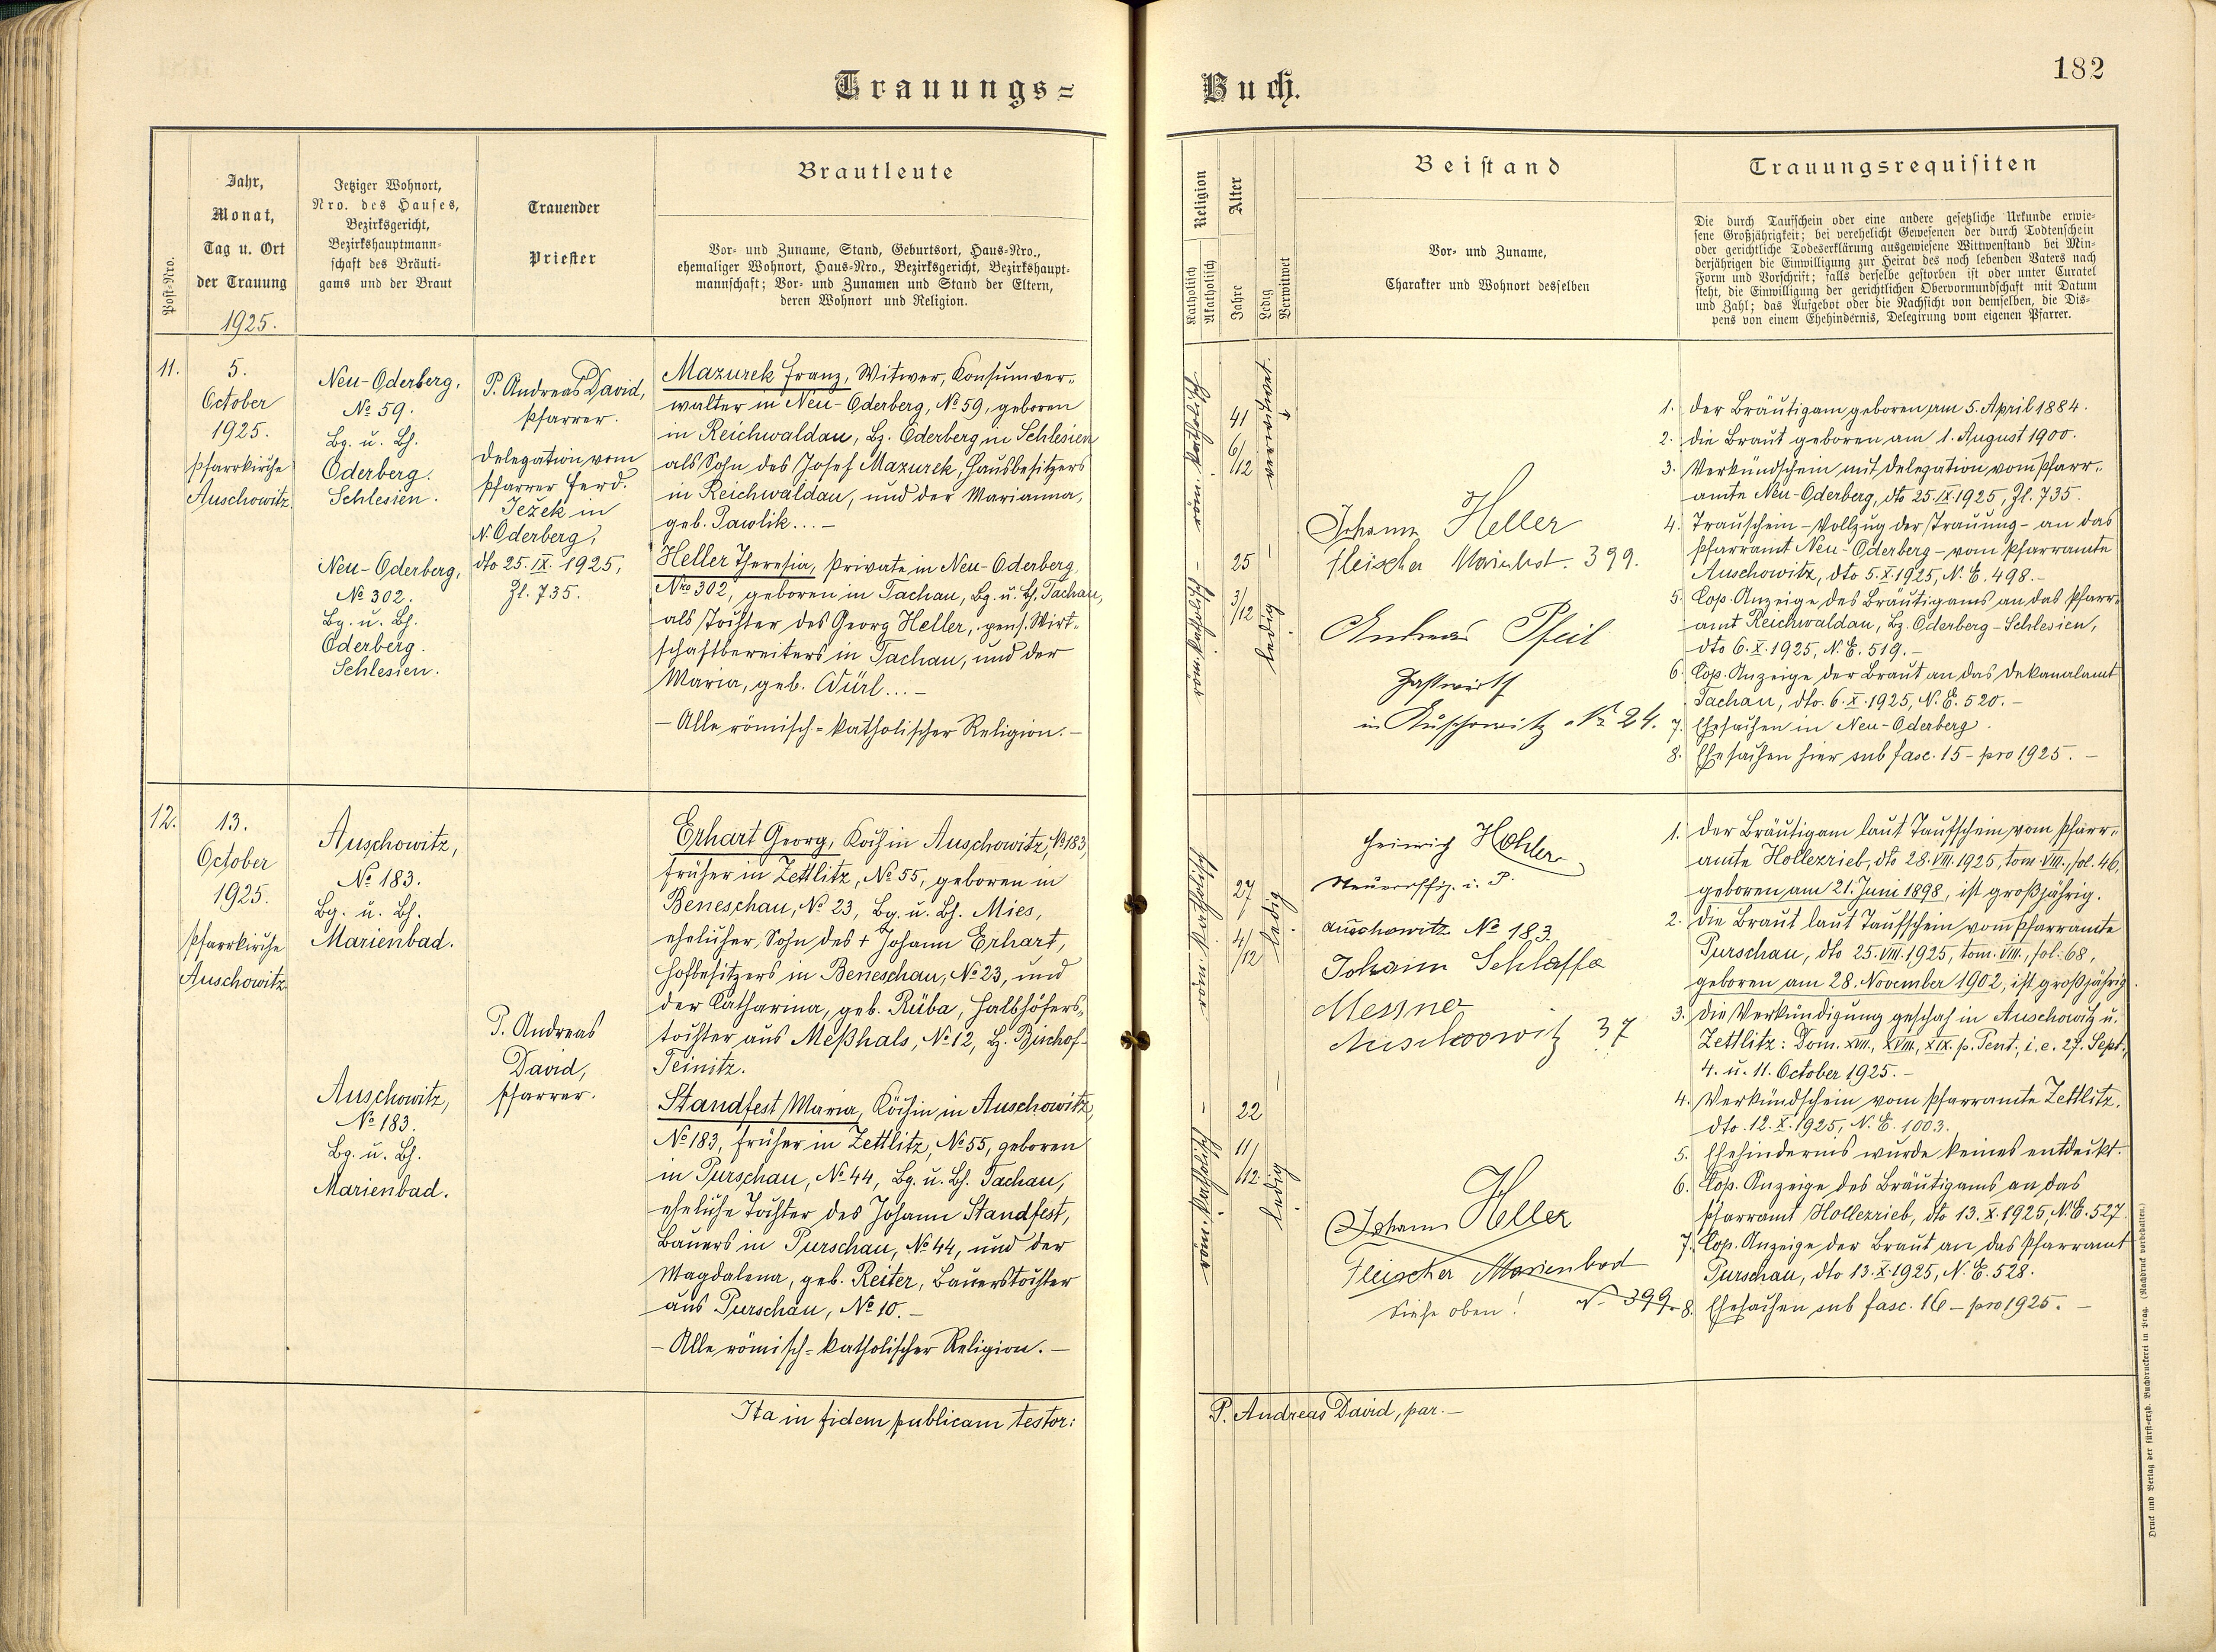 Trauungs=
Jahr,
Monat,
Tag u. Ort
der Trauung
1925.
Post-Nro.
Jetziger Wohnort,
Nro. des Hauses,
Bezirksgericht,
Bezirkshauptmann-
schaft des Bräuti-
gams und der Braut
Trauender
Priester
Brautleute
Vor- und Zuname, Stand, Geburtsort, Haus-Nro.,
ehemaliger Wohnort, Haus-Nro., Bezirksgericht, Bezirkshaupt-
mannschaft; Vor- und Zunamen und Stand der Eltern,
deren Wohnort und Religion.
11.
5.
October
1925.
Pfarrkirche
Auschowitz.
Neu-Oderberg,
№ 59.
Bg. u. Bh.
Oderberg.
Schlesien.
Neu-Oderberg,
№ 302.
Bg. u. Bh.
Oderberg.
Schlesien.
P. Andreas David,
Pfarrer.
Delegation vom
Pfarrer Ferd.
Ježek in
N. Oderberg,
dto 25. IX. 1925,
Zl. 735.
Mazurek Franz, Witwer, Konsumver-
walter in Neu-Oderberg, № 59, geboren
in Reichwaldau, Bz. Oderberg in Schlesien
als Sohn des Josef Mazurek, Hausbesitzers
in Reichwaldau, und der Marianna,
geb. Pawlik...-
Heller Theresia, Private in Neu-Oderberg,
Nro 302, geboren in Tachau, Bg. u. Bh. Tachau,
als Tochter des Georg Heller, pens. Wirt-
schaftbereiters in Tachau, und der
Maria, geb. Würl...-
- Alle römisch=katholischer Religion. -
12.
13.
October
1925.
Pfarrkirche
Auschowitz.
Auschowitz,
№ 183.
Bg. u. Bh.
Marienbad.
Auschowitz,
№ 183.
Bg. u. Bh.
Marienbad.
P. Andreas
David,
Pfarrer.
Erhart Georg, Koch in Auschowitz, № 183,
früher in Zettlitz, № 55, geboren in
Beneschau, № 23, Bg. u. Bh. Mies,
ehelicher Sohn des + Johann Erhart,
Hofbesitzers in Beneschau, № 23, und
der Catharina, geb. Rüba, Halbhöfers-
tochter aus Meßhals, № 12, Bz. Bischof-
Teinitz.
Standfest Maria, Köchin in Auschowitz,
№ 183, früher in Zettlitz, № 55, geboren
in Purschau, № 44, Bg. u. Bh. Tachau,
eheliche Tochter des Johann Standfest,
Bauers in Purschau, № 44, und der
Magdalena, geb. Reiter, Bauerstochter
aus Purschau, № 10.-
- Alle römisch=katholischer Religion. -
Ita in fidem publicam testor:
Buch.
182
Religion
Katholisch
Akatholisch
Alter
Jahre
Ledig
Verwitwet
Beistand
Vor- und Zuname,
Charakter und Wohnort desselben
Trauungsrequisiten
Die durch Taufschein oder eine andere gesetzliche Urkunde erwie-
sene Großjährigkeit; bei verehelicht Gewesenen der durch Todtenschein
oder gerichtliche Todeserklärung ausgewiesene Wittwenstand bei Min-
derjährigen die Einwilligung zur Heirat des noch lebenden Vaters nach
Form und Vorschrift; falls derselbe gestorben ist oder unter Curatel
steht, die Einwilligung der gerichtlichen Obervormundschaft mit Datum
und Zahl; das Aufgebot oder die Nachsicht von demselben, die Dis-
pens von einem Ehehindernis, Delegirung vom eigenen Pfarrer.
röm. katholisch
41
6/12
verwitwet.
röm. katholisch
25
3/12
ledig
Johann Heller
Fleischer Marienbad. 399.
Andreas Pfeil
Gastwirth
in Auschowitz № 24.
1. Der Bräutigam geboren am 5. April 1884.
2. Die Braut geboren am 1. August 1900.
3. Verkündschein mit Delegation vom Pfarr-
amte Neu-Oderberg, dto 25. IX. 1925, Zl. 735.
4. Trauschein - Vollzug der Trauung - an das
Pfarramt Neu-Oderberg - vom Pfarramte
Auschowitz, dto 5. X. 1925, N. E. 498.-
5. Cop. Anzeige des Bräutigams an das Pfarr-
amt Reichwaldau, Bz. Oderberg-Schlesien,
dto 6. X. 1925, N. E. 519.-
6. Cop. Anzeige der Braut an das Dekanalamt
Tachau, dto. 6. X. 1925, N. E. 520.-
7. Ehesachen in Neu-Oderberg.
8. Ehesachen hier sub fasc. 15 - pro 1925. -
röm. katholisch
27
4/12
ledig
röm. katholisch
22
11/12.
ledig
Heinrich Hohler
i. P.
Auschowitz № 183
Johann Schlaffa
Messner
Auschowitz 37
Johann Heller
Fleischer Marienbad
N- 399.
Siehe oben!
1. Der Bräutigam laut Taufschein vom Pfarr-
amte Hollezrieb, dto 28. VIII. 1925, tom. VIII., fol. 46,
geboren am 21. Juni 1898, ist großjährig.
2. Die Braut laut Taufschein vom Pfarramte
Purschau, dto 25. VIII. 1925, tom. VIII., fol. 68,
geboren am 28. November 1902, ist großjährig.
3. Die Verkündigung geschah in Auschowitz u.
Zettlitz: Dom. XVII., XVIII., XIX. p. Pent., i. e. 27. Sept.,
4. u. 11. October 1925. -
4. Verkündschein vom Pfarramte Zettlitz,
dto. 12. X. 1925, N. E. 1003.
5. Ehehindernis wurde keines entdeckt.
6. Cop. Anzeige des Bräutigams an das
Pfarramt Hollezrieb, dto 13. X. 1925, N. E. 527.
7. Cop. Anzeige der Braut an das Pfarramt
Purschau, dto 13. X. 1925, N. E. 528.
8. Ehesachen sub fasc. 16 - pro 1925. -
P. Andreas David, par.-
Druck und Verlag der fürst-erzb. Buchdruckerei in Prag. (Nachdruck vorbehalten.)